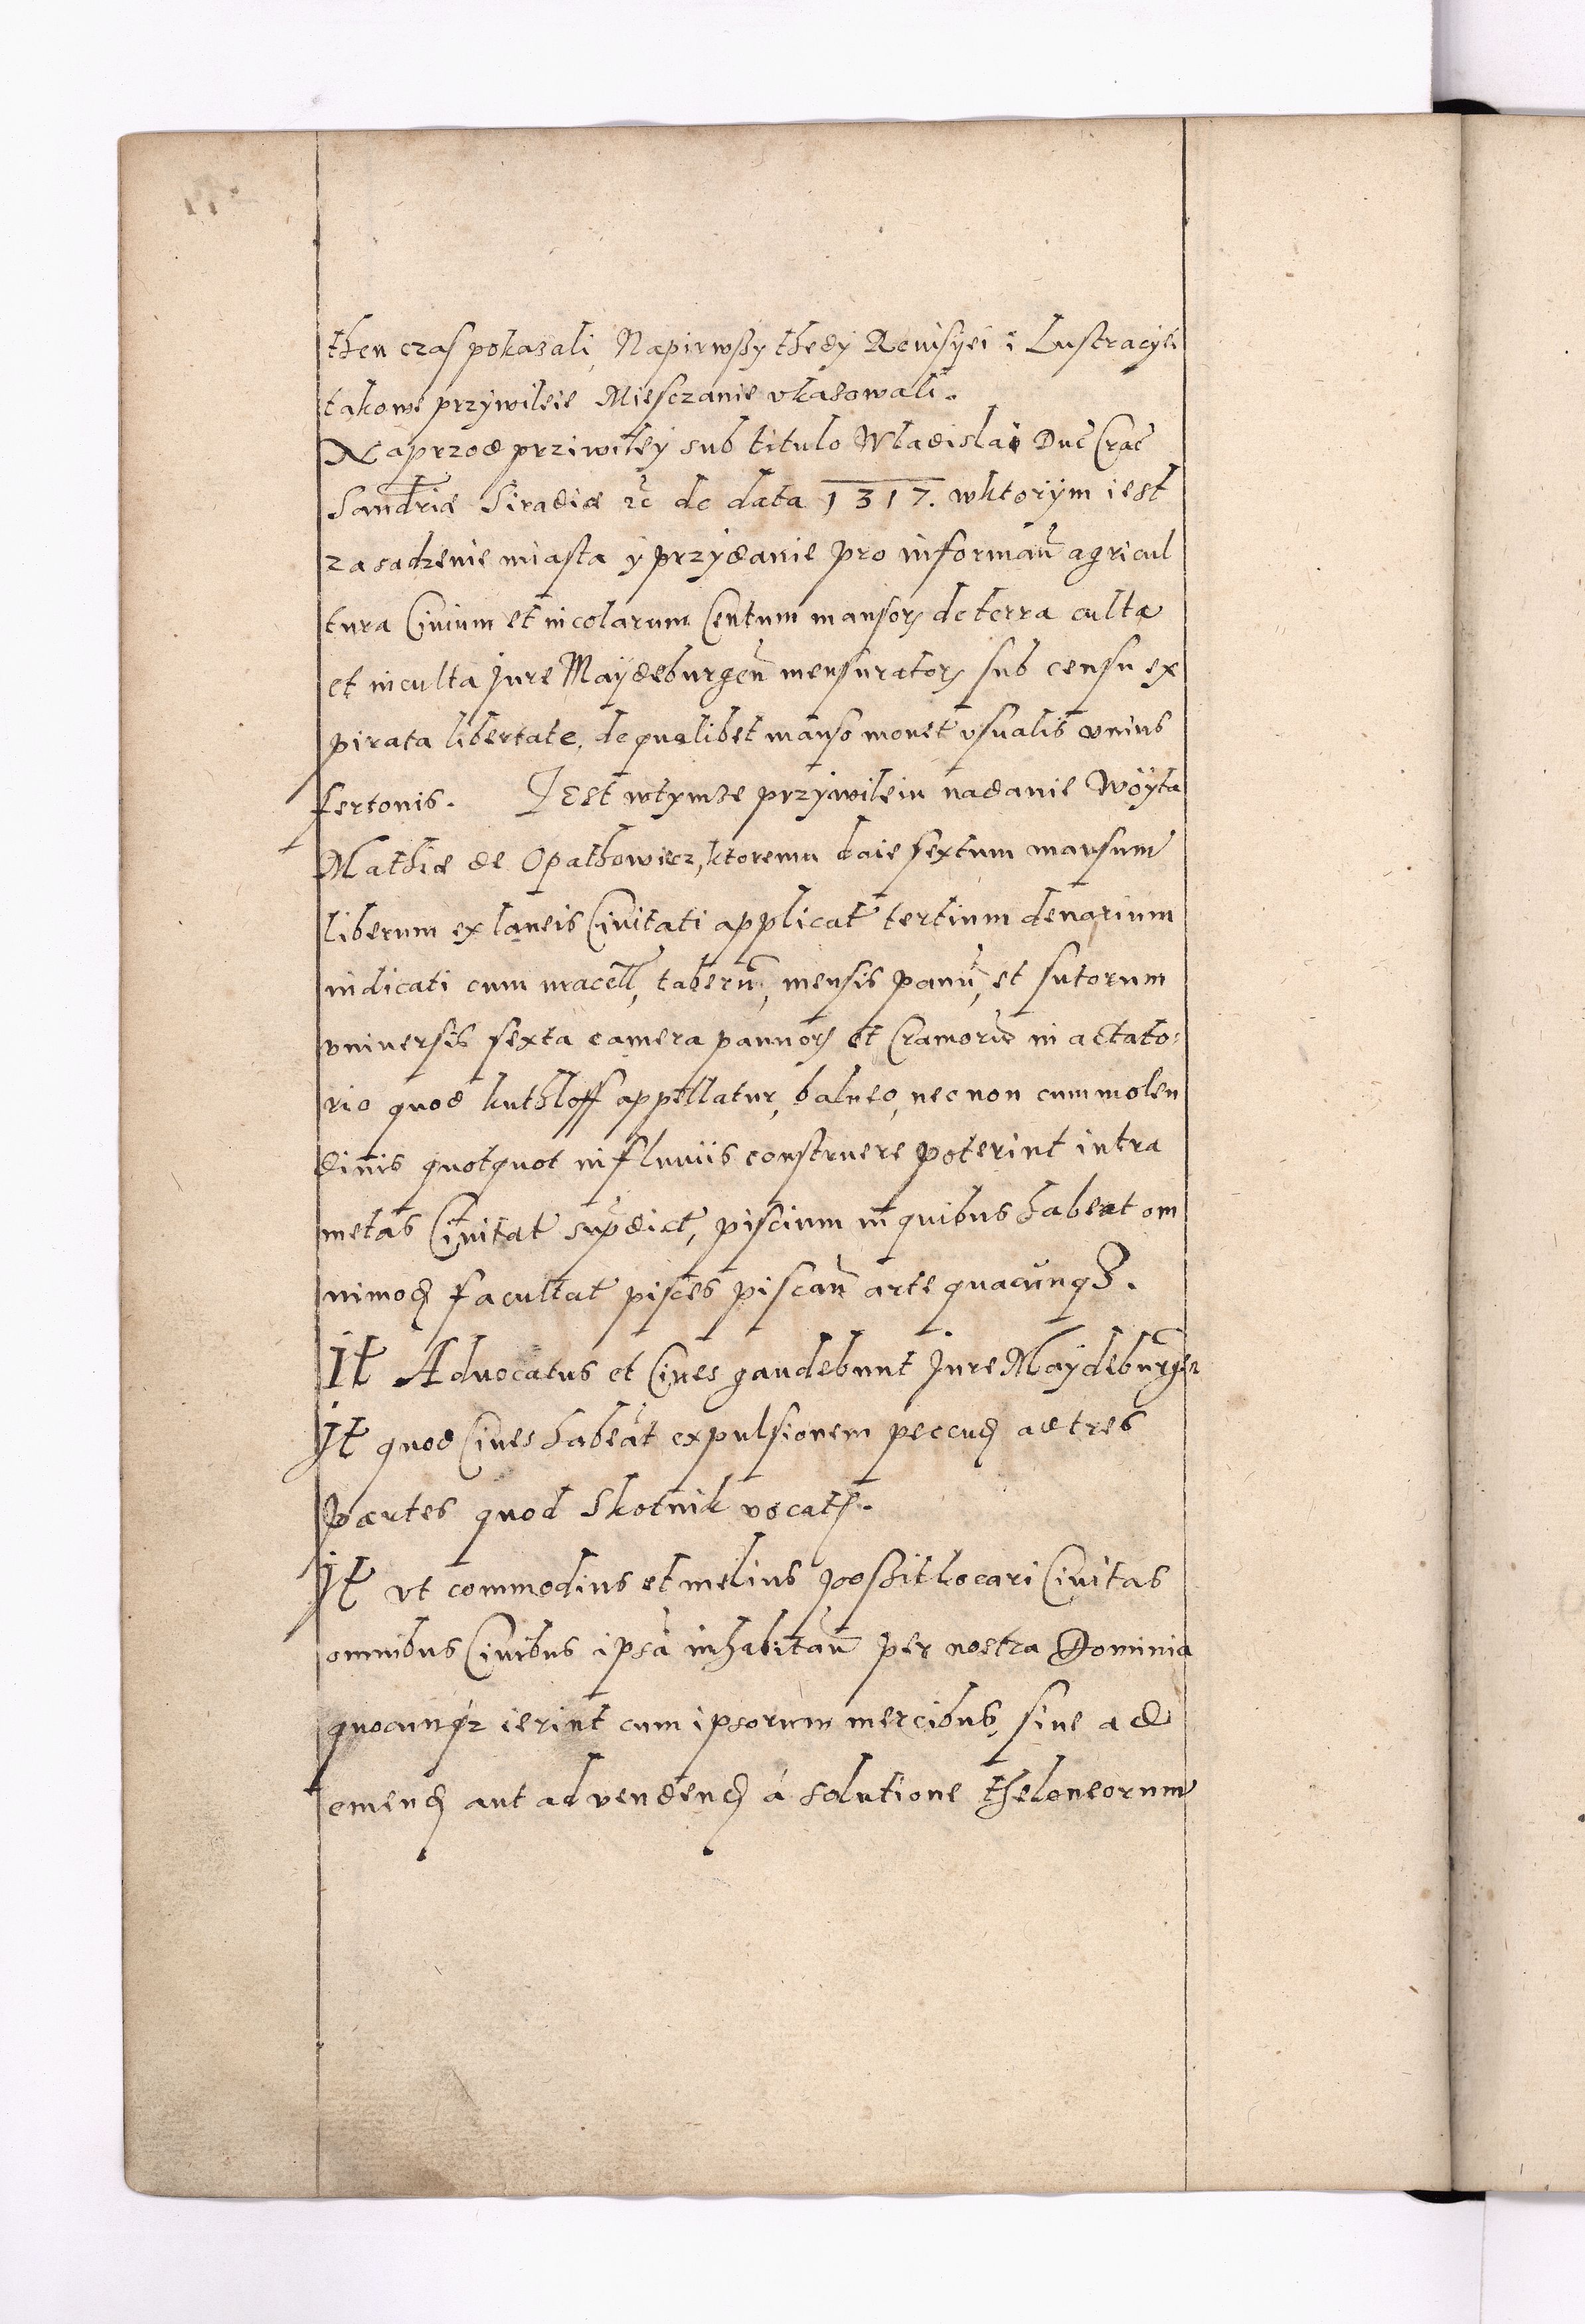 then czas pokazali, Napirwßy thedy Reuisyei i Lustracyei
takowe przywileie Miesczanie vkazowali.
Naprzod prziwiley sub titulo Wladislai Duc Crac
Sandriæ Siradiæ etc de data 1317. wktorym iest
zasadzenie miasta y przydanie pro informan agricul
tura Ciuium et incolarum Centum mansorum de terra culta
et inculta Jure Maydeburgen mensuratorum sub censu ex
pirata libertate, de qualibet manso monet vsualis vnius
fertonis. Jest wtymze przywileiu nadanie Woyta
Mathiæ de Opathowicz, ktoremu daie sextum mansum
liberum ex laneis Ciuitati applicat tertium denarium
iudicati cum macell, tabern, mensis panu, et sutorum
vniuersis sexta camera pannorum et Cramorum in actato:
rio quod kuthloff appellatur, balneo, necnon cum molen
dinis quotquot in fluuiis construere poterint intra
metas Ciuitat supdict, piscium in quibus habeat om
nimod facultat pisces piscan arte quacunq3.
It Aduocatus et Ciues gaudebunt Jure Maydeburgen
It quod Ciues habeat expulsionem peccud ad tres
partes quod Skotnik vocat.
It vt commodius et melius possit locari Ciuitas
omnibus Ciuibus ipsa inhabitan per nostra Dominia
quocunqz ierint cum ipsorum mercibus, siue ad
emend aut ad vendend á solutione theloneorum